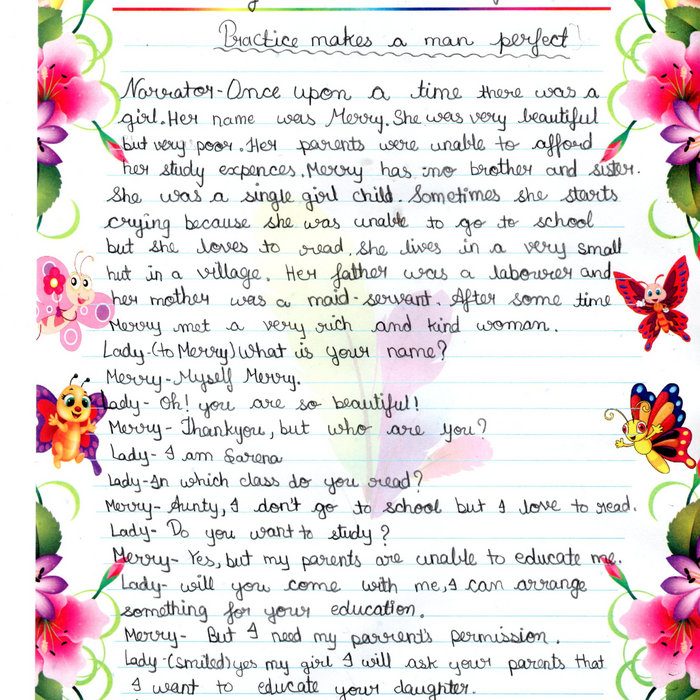 Practice makes a man perfect
Narrator-Once upon a time there was a
girl. Her name was Merry. She was very beautiful
but very poor. Her parents were unable to afford
her study expences. Merry has no brother and sister.
She was a single girl child. Sometimes she starts
crying because she was unable to go to school
but she loves to read. She lives in a very small
hut in a village. Her father was a labourer and
her mother was a maid-servant. After some time
Merry met a very rich and kind woman.
Lady-(to Merry) What is your name?
Merry- Myself Merry.
Lady- Oh! you are so beautiful!
Merry- Thankyou, but who are you?
Lady- I am Sarena
Lady-In which class do you read?
Merry- Aunty, I don't go to school but I love to read.
Lady- Do you want to study?
Merry- Yes, but my parents are unable to educate me.
Lady- will you come with me, I can arrange
something for your education.
Merry- But I need my parrent's permission.
Lady-(smiled) yes my girl I will ask your parents that
I want to educate your daughter.